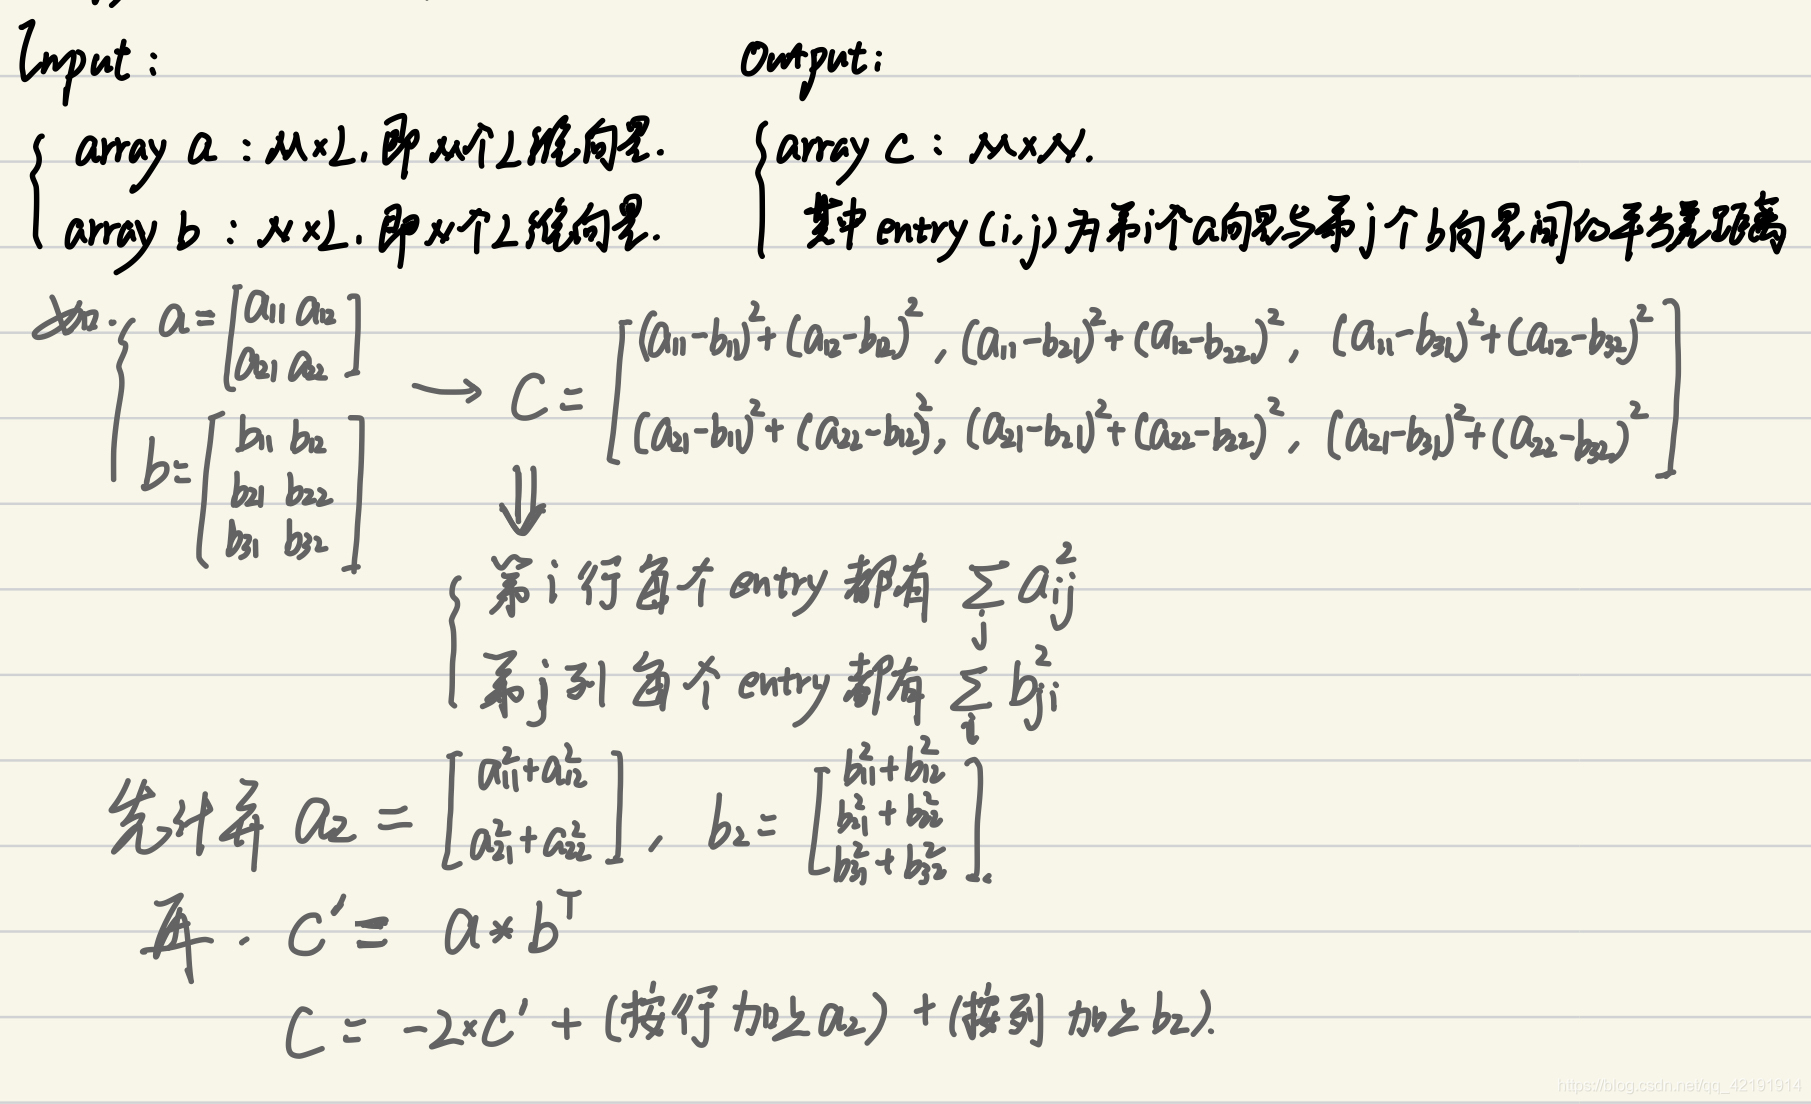 Input :
Output:
array a : M×L, 即M个L维向量.
array b : N×L, 即N个L维向量.
array c : M×N.
其中 entry (i,j) 为第i个a向量与第j个b向量间的平方差距离
如. a = [a11 a12
a21 a22]
b = [b11 b12
b21 b22
b31 b32]
→ C = [(a11-b11)²+(a12-b12)², (a11-b21)²+(a12-b22)², (a11-b31)²+(a12-b32)²
(a21-b11)²+(a22-b12)², (a21-b21)²+(a22-b22)², (a21-b31)²+(a22-b32)²]
⇓
第i行每个entry都有 ∑j aij²
第j列每个entry都有 ∑i bji²
先计算 a2 = [a11²+a12²
a21²+a22²], b2 = [b11²+b12²
b21²+b22²
b31²+b32²].
再. C' = a * bᵀ
C = -2×C' + (按行加上a2) + (按列加上b2).
https://blog.csdn.net/qq_42191914